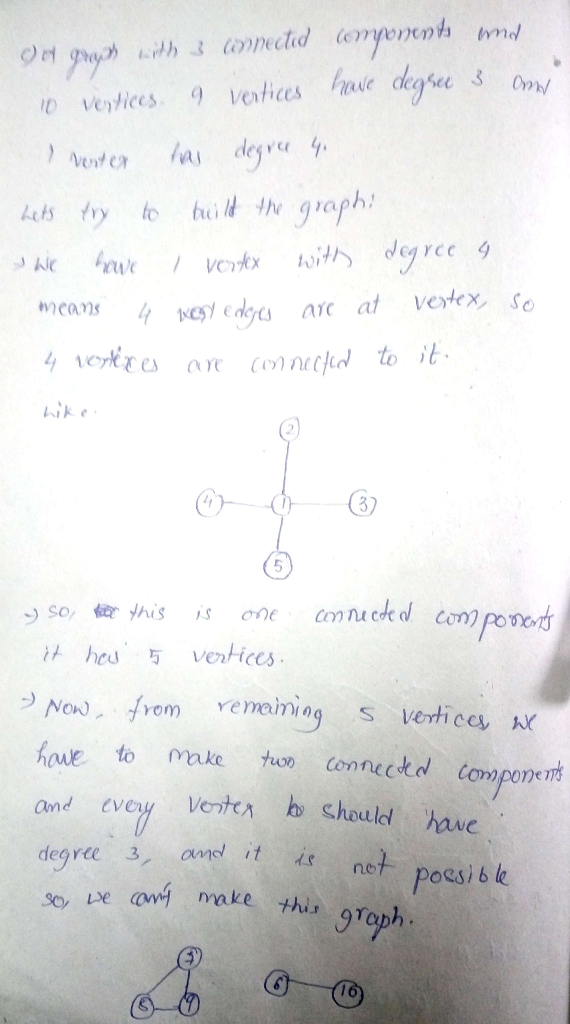 c) A graph with 3 connected components and
10 vertices. 9 vertices have degree 3 and
1 vertex has degree 4.
Lets try to built the graph:
→ We have 1 vertex with degree 4
means 4 edges are at vertex, so
4 vertexes are connected to it.
Like.
2
4 1 3
5
→ so, this is one connected components
it has 5 vertices.
→ Now, from remaining 5 vertices we
have to make two connected components
and every vertex should have
degree 3, and it is not possible
so, we can't make this graph.
7
6 10
8 9